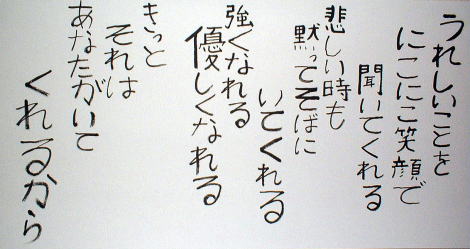 うれしいことを
にこにこ笑顔で
聞いてくれる
悲しい時も
黙ってそばに
いてくれる
強くなれる
優しくなれる
きっと
それは
あなたがいて
くれるから